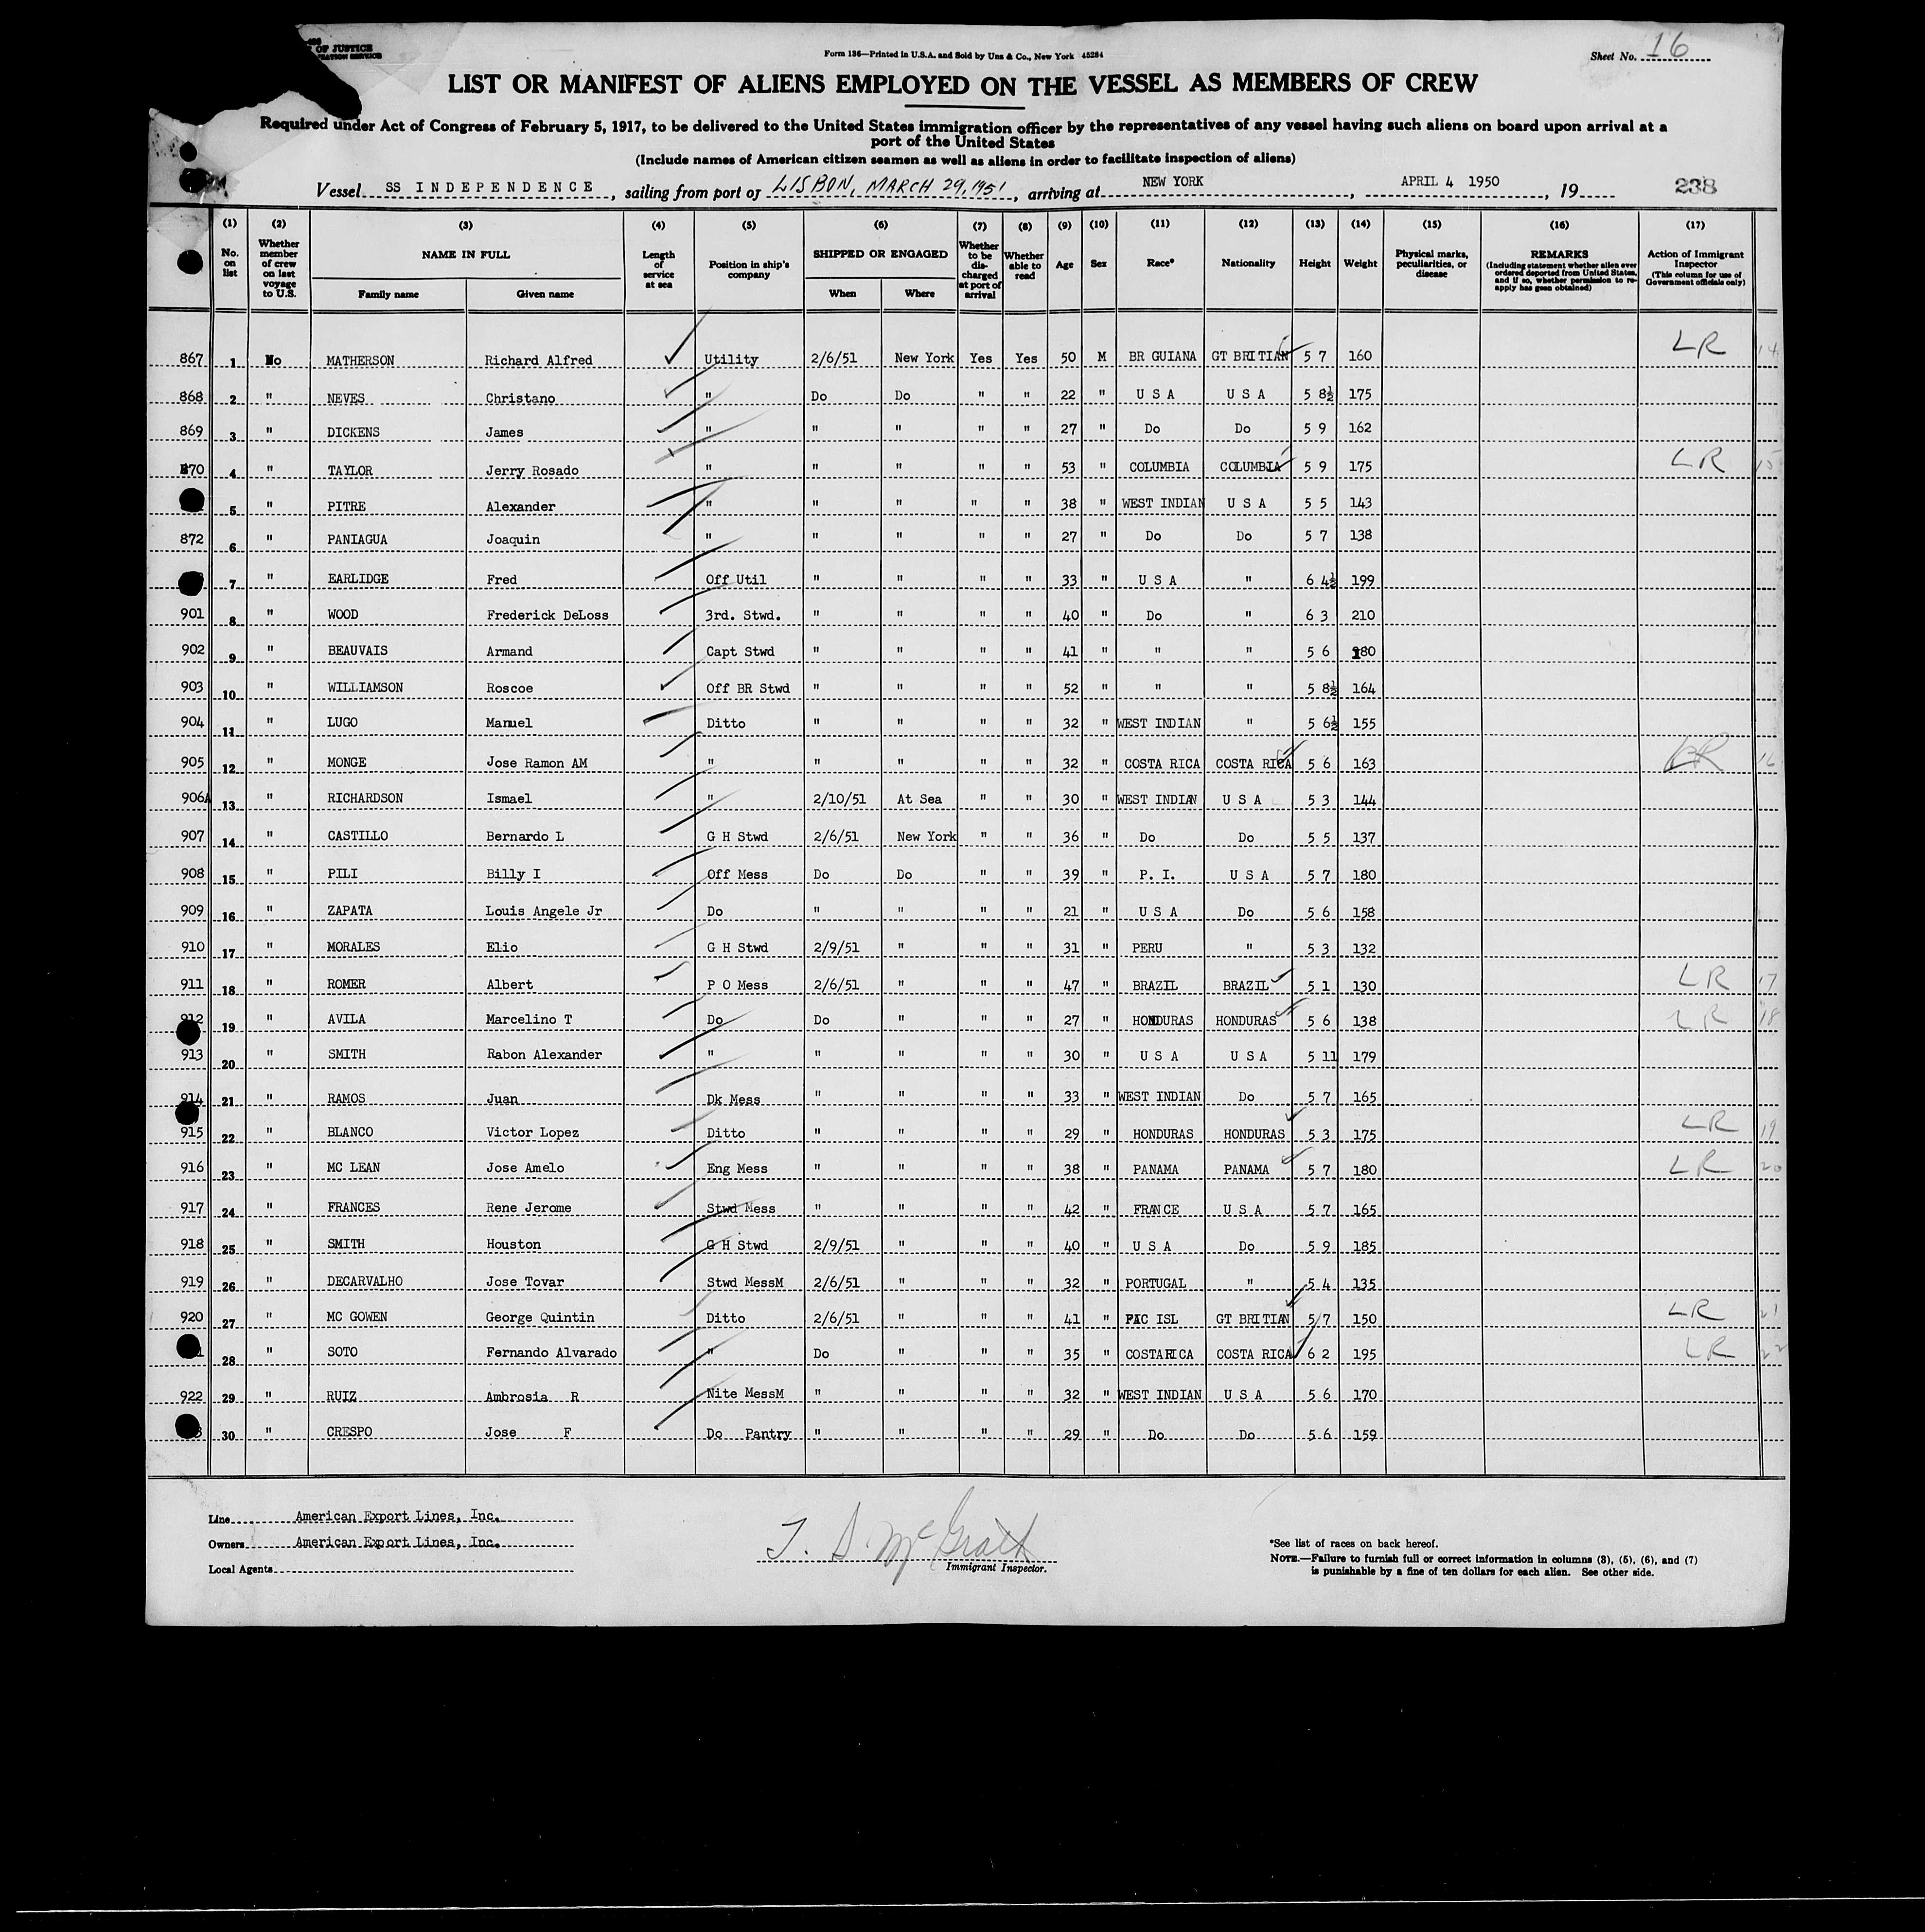 OF JUSTICE
Form 136—Printed in U.S.A. and Sold by Unz & Co., New York 45284
Sheet No. 16
LIST OR MANIFEST OF ALIENS EMPLOYED ON THE VESSEL AS MEMBERS OF CREW
Required under Act of Congress of February 5, 1917, to be delivered to the United States immigration officer by the representatives of any vessel having such aliens on board upon arrival at a
port of the United States
(Include names of American citizen seamen as well as aliens in order to facilitate inspection of aliens)
Vessel SS INDEPENDENCE, sailing from port of LISBON, MARCH 29, 1951, arriving at NEW YORK, APRIL 4 1950, 19 238
(1) (2) (3) (4) (5) (6) (7) (8) (9) (10) (11) (12) (13) (14) (15) (16) (17)
No. on list
Whether member of crew on last voyage to U.S.
NAME IN FULL
Family name
Given name
Length of service at sea
Position in ship's company
SHIPPED OR ENGAGED
When
Where
Whether to be discharged at port of arrival
Whether able to read
Age
Sex
Race*
Nationality
Height
Weight
Physical marks, peculiarities, or disease
REMARKS
(Including statement whether alien ever ordered deported from United States, and if so, whether permission to re-apply has been obtained)
Action of Immigrant Inspector
(This column for use of Government officials only)
867 1 No MATHERSON Richard Alfred Utility 2/6/51 New York Yes Yes 50 M BR GUIANA GT BRITIAN 5 7 160 LR 14
868 2 " NEVES Christano " Do Do " " 22 " U S A U S A 5 8½ 175
869 3 " DICKENS James " " " " " 27 " Do Do 5 9 162
870 4 " TAYLOR Jerry Rosado " " " " " 53 " COLUMBIA COLUMBIA 5 9 175 LR 15
5 " PITRE Alexander " " " " " 38 " WEST INDIAN U S A 5 5 143
872 6 " PANIAGUA Joaquin " " " " " 27 " Do Do 5 7 138
7 " EARLIDGE Fred Off Util " " " " 33 " U S A " 6 4½ 199
901 8 " WOOD Frederick DeLoss 3rd. Stwd. " " " " 40 " Do " 6 3 210
902 9 " BEAUVAIS Armand Capt Stwd " " " " 41 " " " 5 6 180
903 10 " WILLIAMSON Roscoe Off BR Stwd " " " " 52 " " " 5 8½ 164
904 11 " LUGO Manuel Ditto " " " " 32 " WEST INDIAN " 5 6½ 155
905 12 " MONGE Jose Ramon AM " " " " " 32 " COSTA RICA COSTA RICA 5 6 163 LR 16
906A 13 " RICHARDSON Ismael " 2/10/51 At Sea " " 30 " WEST INDIAN U S A 5 3 144
907 14 " CASTILLO Bernardo L G H Stwd 2/6/51 New York " " 36 " Do Do 5 5 137
908 15 " PILI Billy I Off Mess Do Do " " 39 " P. I. U S A 5 7 180
909 16 " ZAPATA Louis Angele Jr Do " " " " 21 " U S A Do 5 6 158
910 17 " MORALES Elio G H Stwd 2/9/51 " " " 31 " PERU " 5 3 132
911 18 " ROMER Albert P O Mess 2/6/51 " " " 47 " BRAZIL BRAZIL 5 1 130 LR 17
912 19 " AVILA Marcelino T Do Do " " " 27 " HONDURAS HONDURAS 5 6 138 LR 18
913 20 " SMITH Rabon Alexander " " " " " 30 " U S A U S A 5 11 179
914 21 " RAMOS Juan Dk Mess " " " " 33 " WEST INDIAN Do 5 7 165
915 22 " BLANCO Victor Lopez Ditto " " " " 29 " HONDURAS HONDURAS 5 3 175 LR 19
916 23 " MC LEAN Jose Amelo Eng Mess " " " " 38 " PANAMA PANAMA 5 7 180 LR 20
917 24 " FRANCES Rene Jerome Stwd Mess " " " " 42 " FRANCE U S A 5 7 165
918 25 " SMITH Houston G H Stwd 2/9/51 " " " 40 " U S A Do 5 9 185
919 26 " DECARVALHO Jose Tovar Stwd MessM 2/6/51 " " " 32 " PORTUGAL " 5 4 135
920 27 " MC GOWEN George Quintin Ditto 2/6/51 " " " 41 " PAC ISL GT BRITIAN 5 7 150 LR 21
28 " SOTO Fernando Alvarado " Do " " " 35 " COSTARICA COSTA RICA 6 2 195 LR 22
922 29 " RUIZ Ambrosia R Nite MessM " " " " 32 " WEST INDIAN U S A 5 6 170
30 " CRESPO Jose F Do Pantry " " " " 29 " Do Do 5 6 159
Line American Export Lines, Inc.
Owners American Export Lines, Inc.
Local Agents
T. S. McGrath
Immigrant Inspector.
*See list of races on back hereof.
NOTE.—Failure to furnish full or correct information in columns (3), (5), (6), and (7)
is punishable by a fine of ten dollars for each alien. See other side.